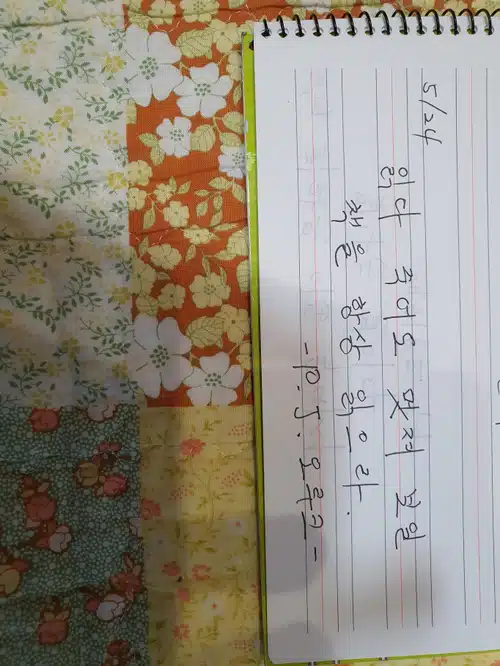 5/24
읽다 죽어도 멋져 보일
책을 항상 읽으라.
-P.J.오루크-